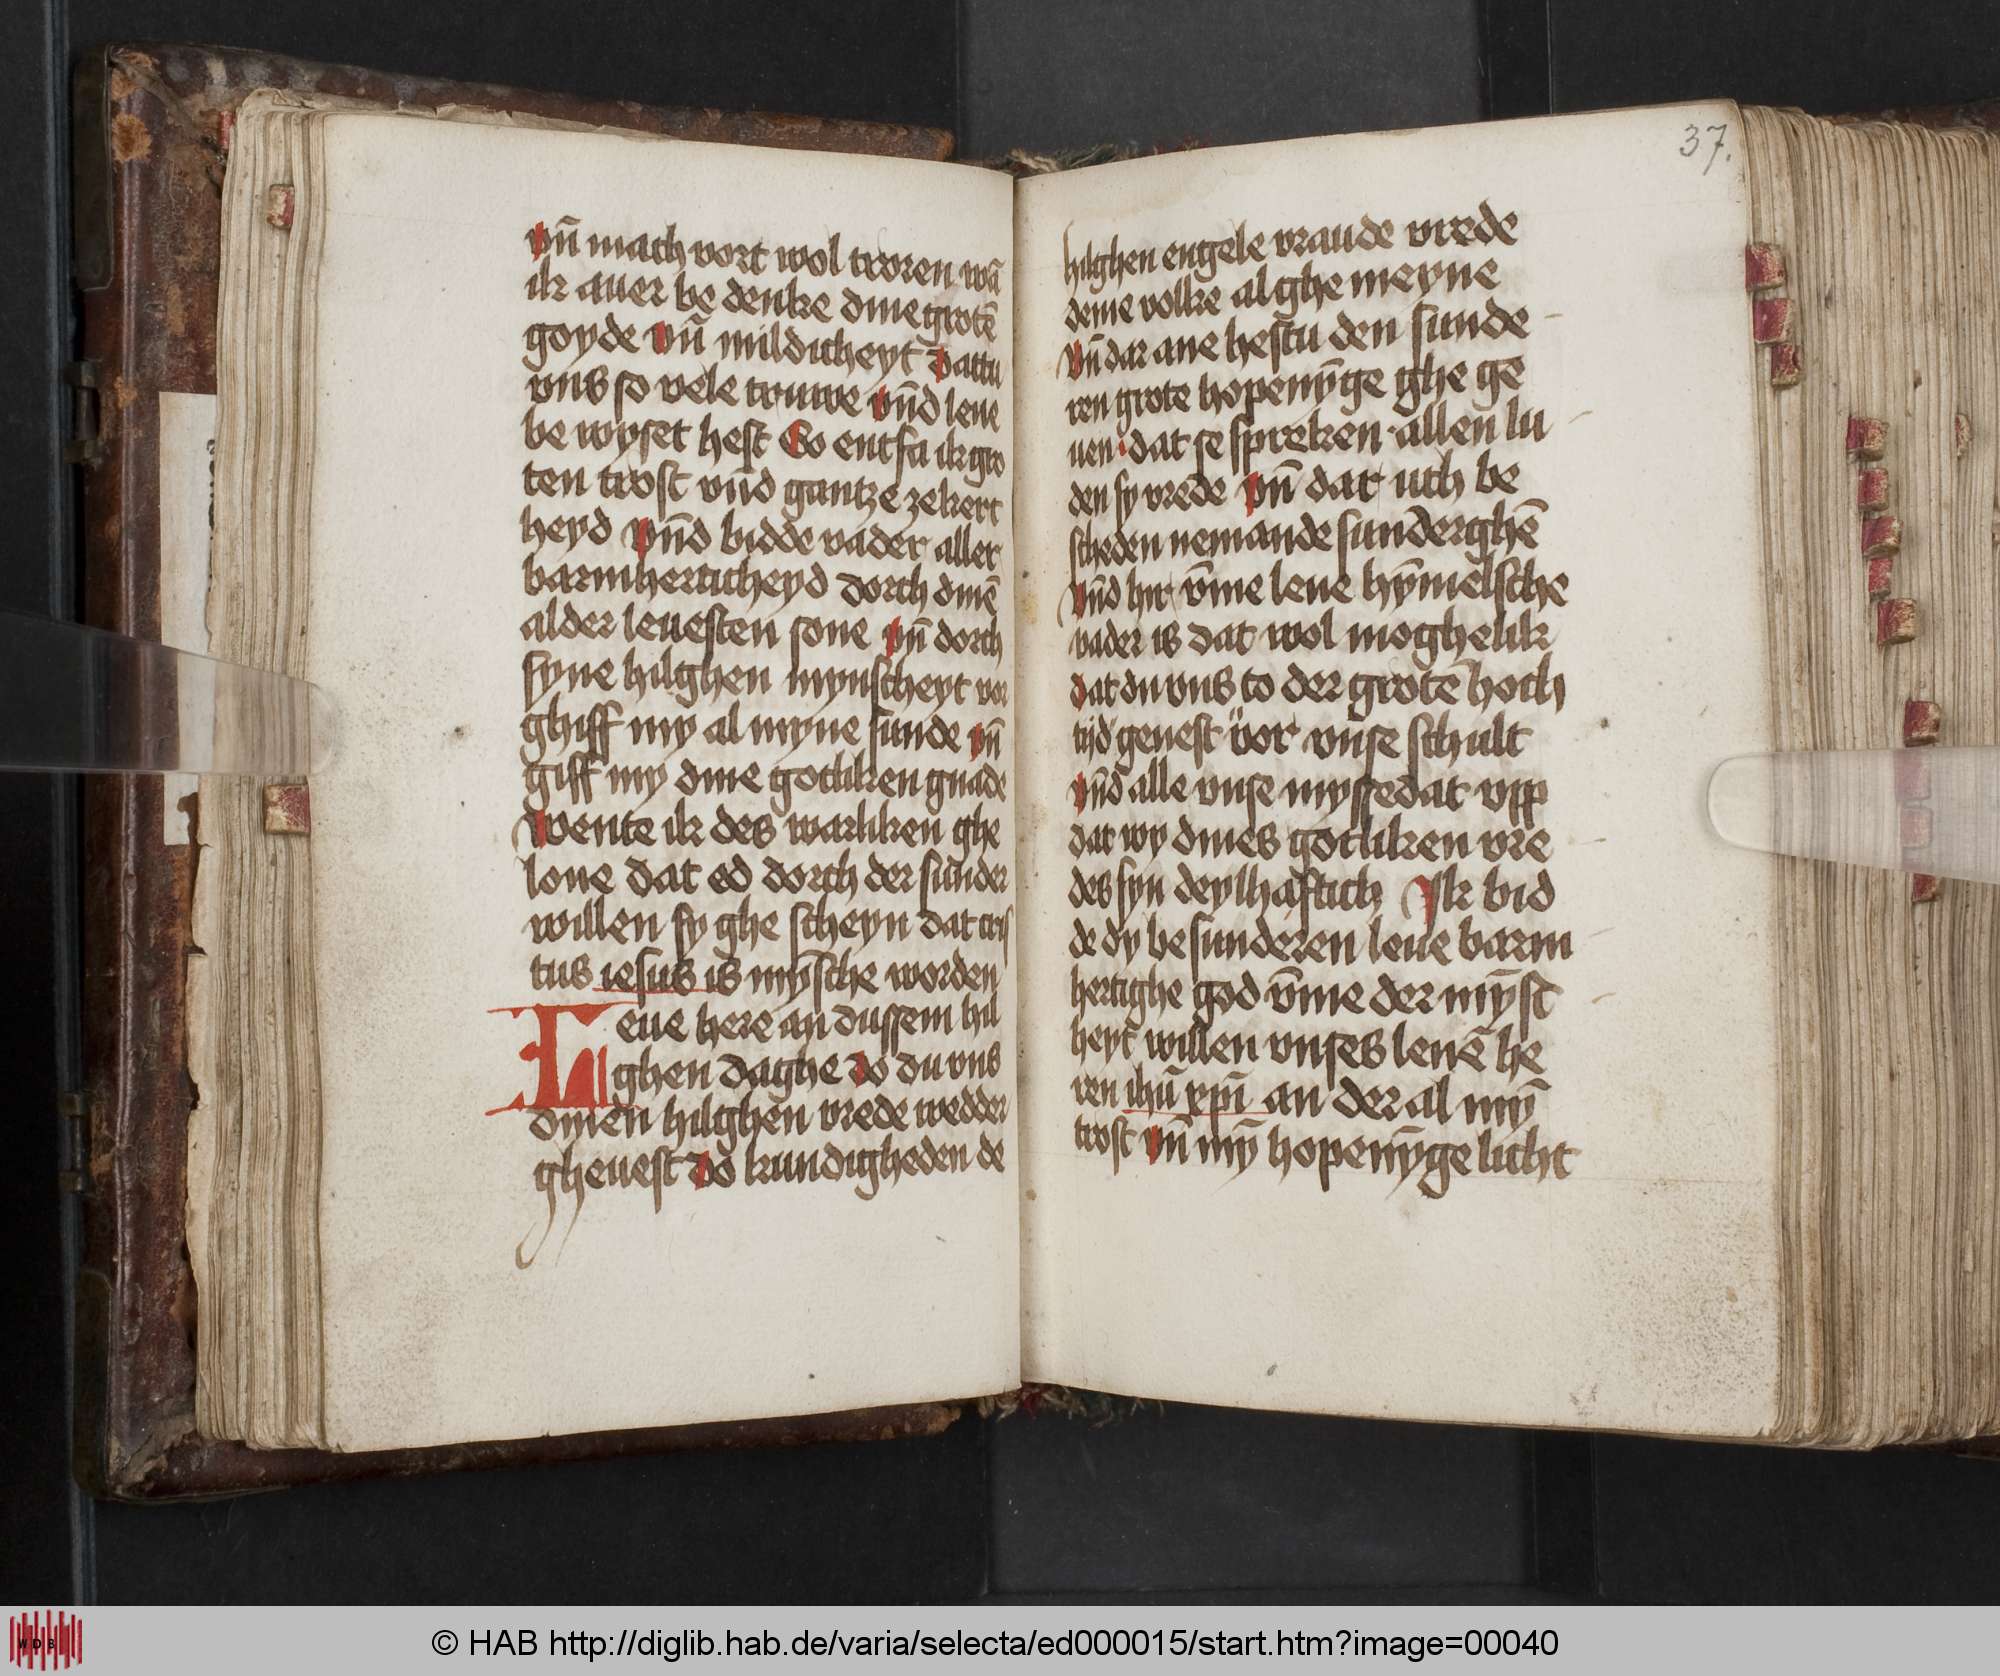 vn̄ mach vort wol troren wā
ik auer be denke dine grotē
goyde vn̄ mildicheyt dattu
vns so vele truwe vn̄d leue
be wyset hest So entfa ik gro
ten trost vn̄d gantze zekert
heyd vn̄d bidde vader aller
barmherticheyd dorch dinē
alder leuesten sone vn̄ dorch
syne hilghen mynscheyt vor
ghiff my al myne sunde vn̄
giff my dine gotliken gnade
Wente ik des warliken ghe
loue dat ed dorch der sunder
willen sy ghe scheyn dat cris
tus iesus is mȳsche worden
Leue here an dussem hil
ghen daghe do du vns
dinen hilghen vrede wedder
gheuest do kundigheden de
37.
hilghen engele vraude vrede
deme volke alghe meyne
vn̄ dar ane hestu den sunde
ren grote hopenȳge ghe ge
uen dat se spreken allen lu
den sy vrede vn̄ dar uth be
scheden nemande sunderghē
vn̄d hir v̄me leue hȳmelsche
vader is dat wol moghelik
dat du vns to der groten hoch
tijd geuest vor vnse schult
vn̄d alle vnse myssedat vpp
dat wy dines gotliken vre
des syn deylhaftich Ik bid
de dy besunderen leue barm
hertighe god v̄me der mȳst
heyt willen vnses leuē he
ren ihū xpī an der al mȳ
trost vn̄ mȳ hopenȳge licht
WDB
© HAB http://diglib.hab.de/varia/selecta/ed000015/start.htm?image=00040